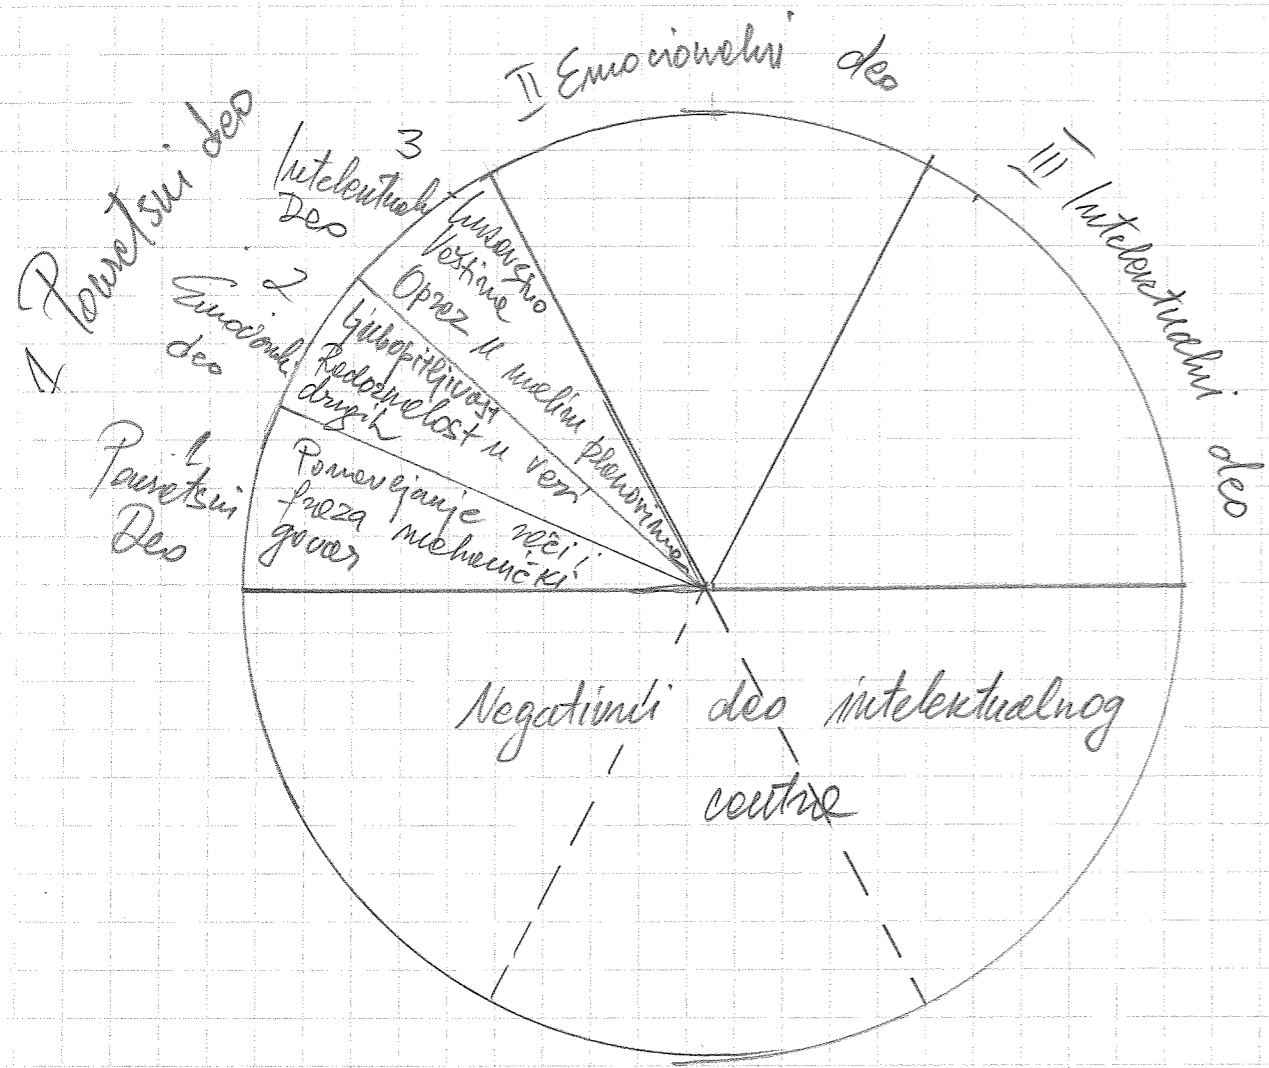 II Emocionalni deo
III Intelektualni deo
1 Pokretski deo
3
Intelektualni
Deo
2
Emocionalni
deo
1
Pokretski
Deo
Oprez u malim planovima
Ljubopitljivost
Radoznalost u vezi
drugih
Ponavljanje reči i
fraza mehanički
govor
Negativni deo intelektualnog
centra